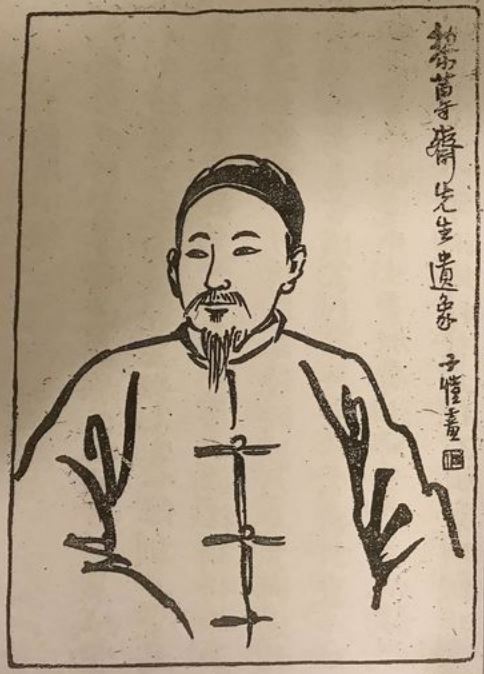 黎蓴齋先生遺象 子愷畫